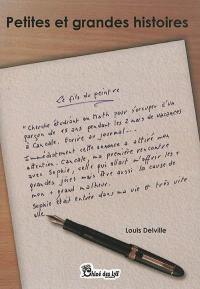 Petites et grandes histoires
Le fils du peintre
"Cherche étudiant en Math pour s'occuper d'un
garçon de 15 ans pendant les 2 mois de vacances
à Cancale. Écrire au journal...
Immédiatement cette annonce a attiré mon
attention. Cancale, ma première rencontre
avec Sophie, celle qui allait m'offrir les +
grandes joies mais être aussi la cause de
mon + grand malheur.
Sophie était entrée dans ma vie et très vite
elle
Louis Delville
Chloé des lys